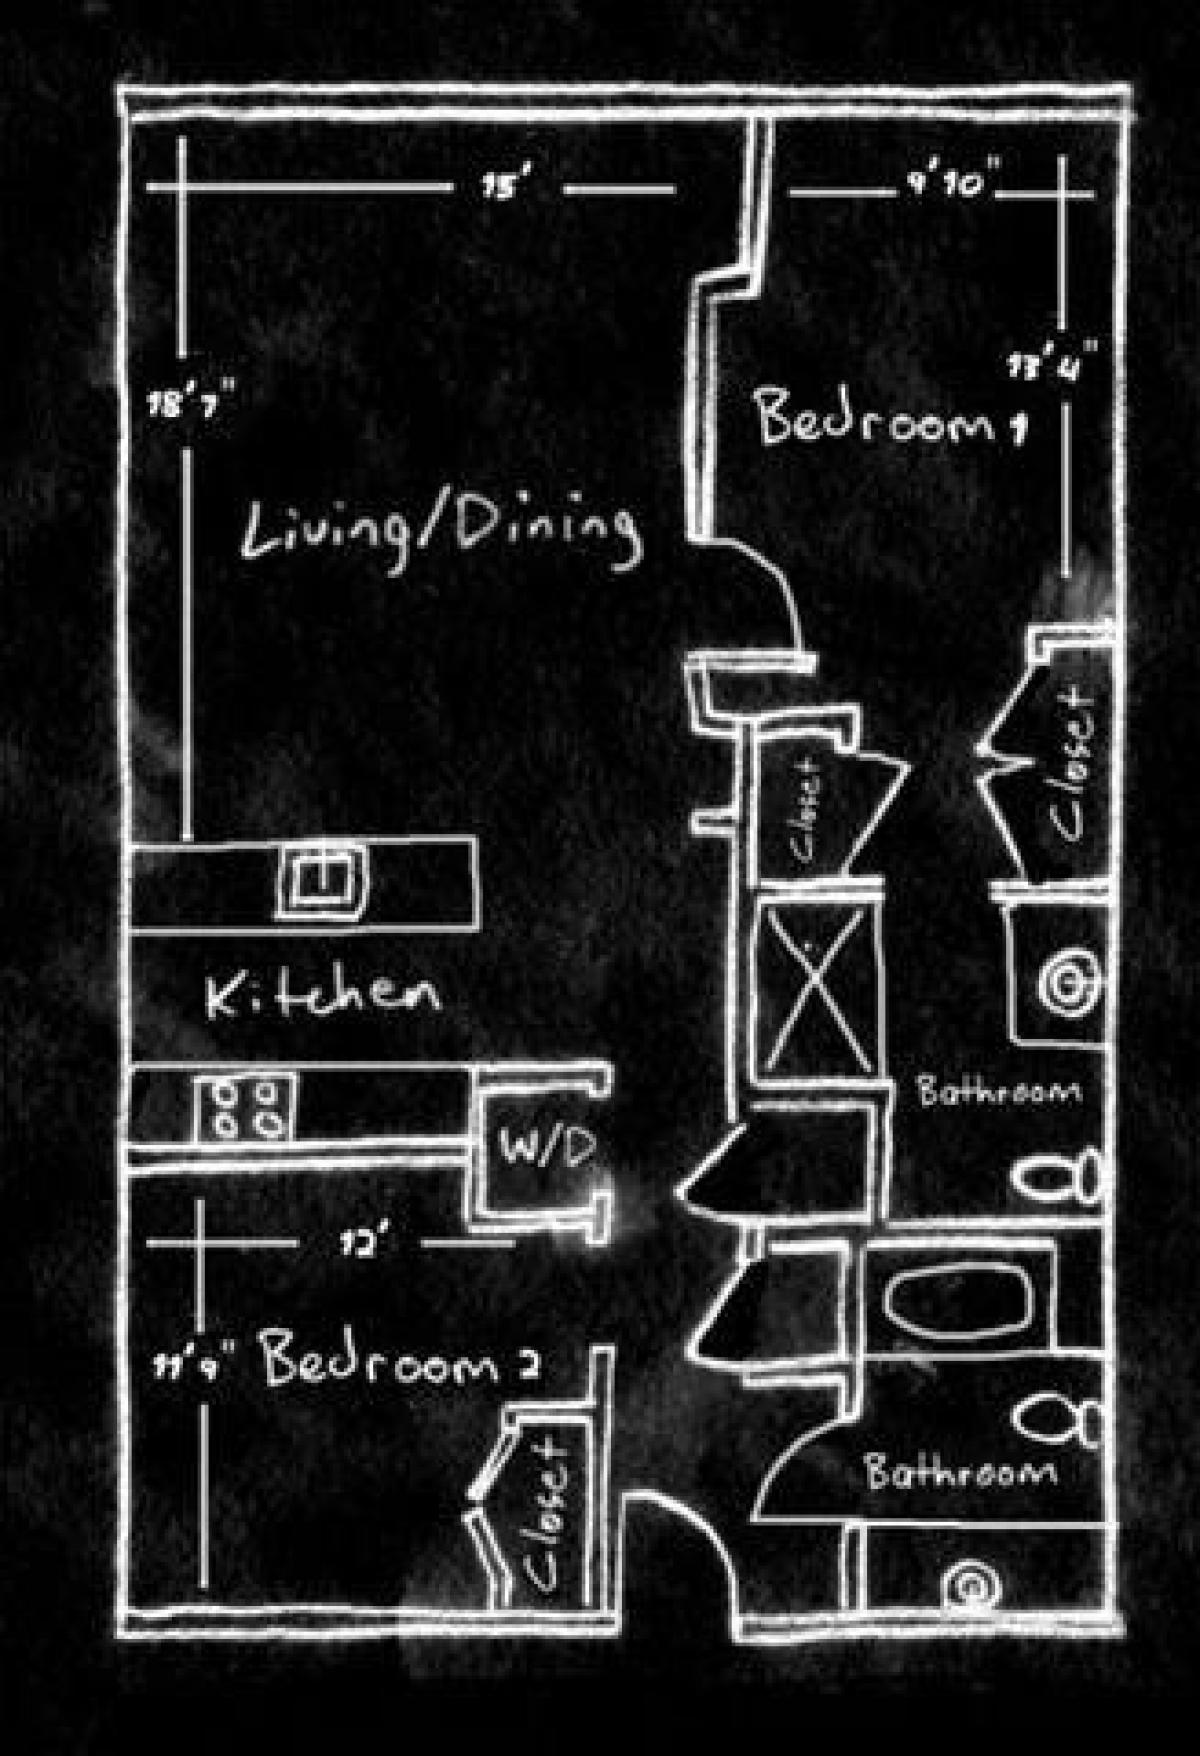 15'
9'10"
13'4"
18'7"
Bedroom 1
Living/Dining
Closet
Closet
Kitchen
Bathroom
W/D
12'
11'9"
Bedroom 2
Closet
Bathroom